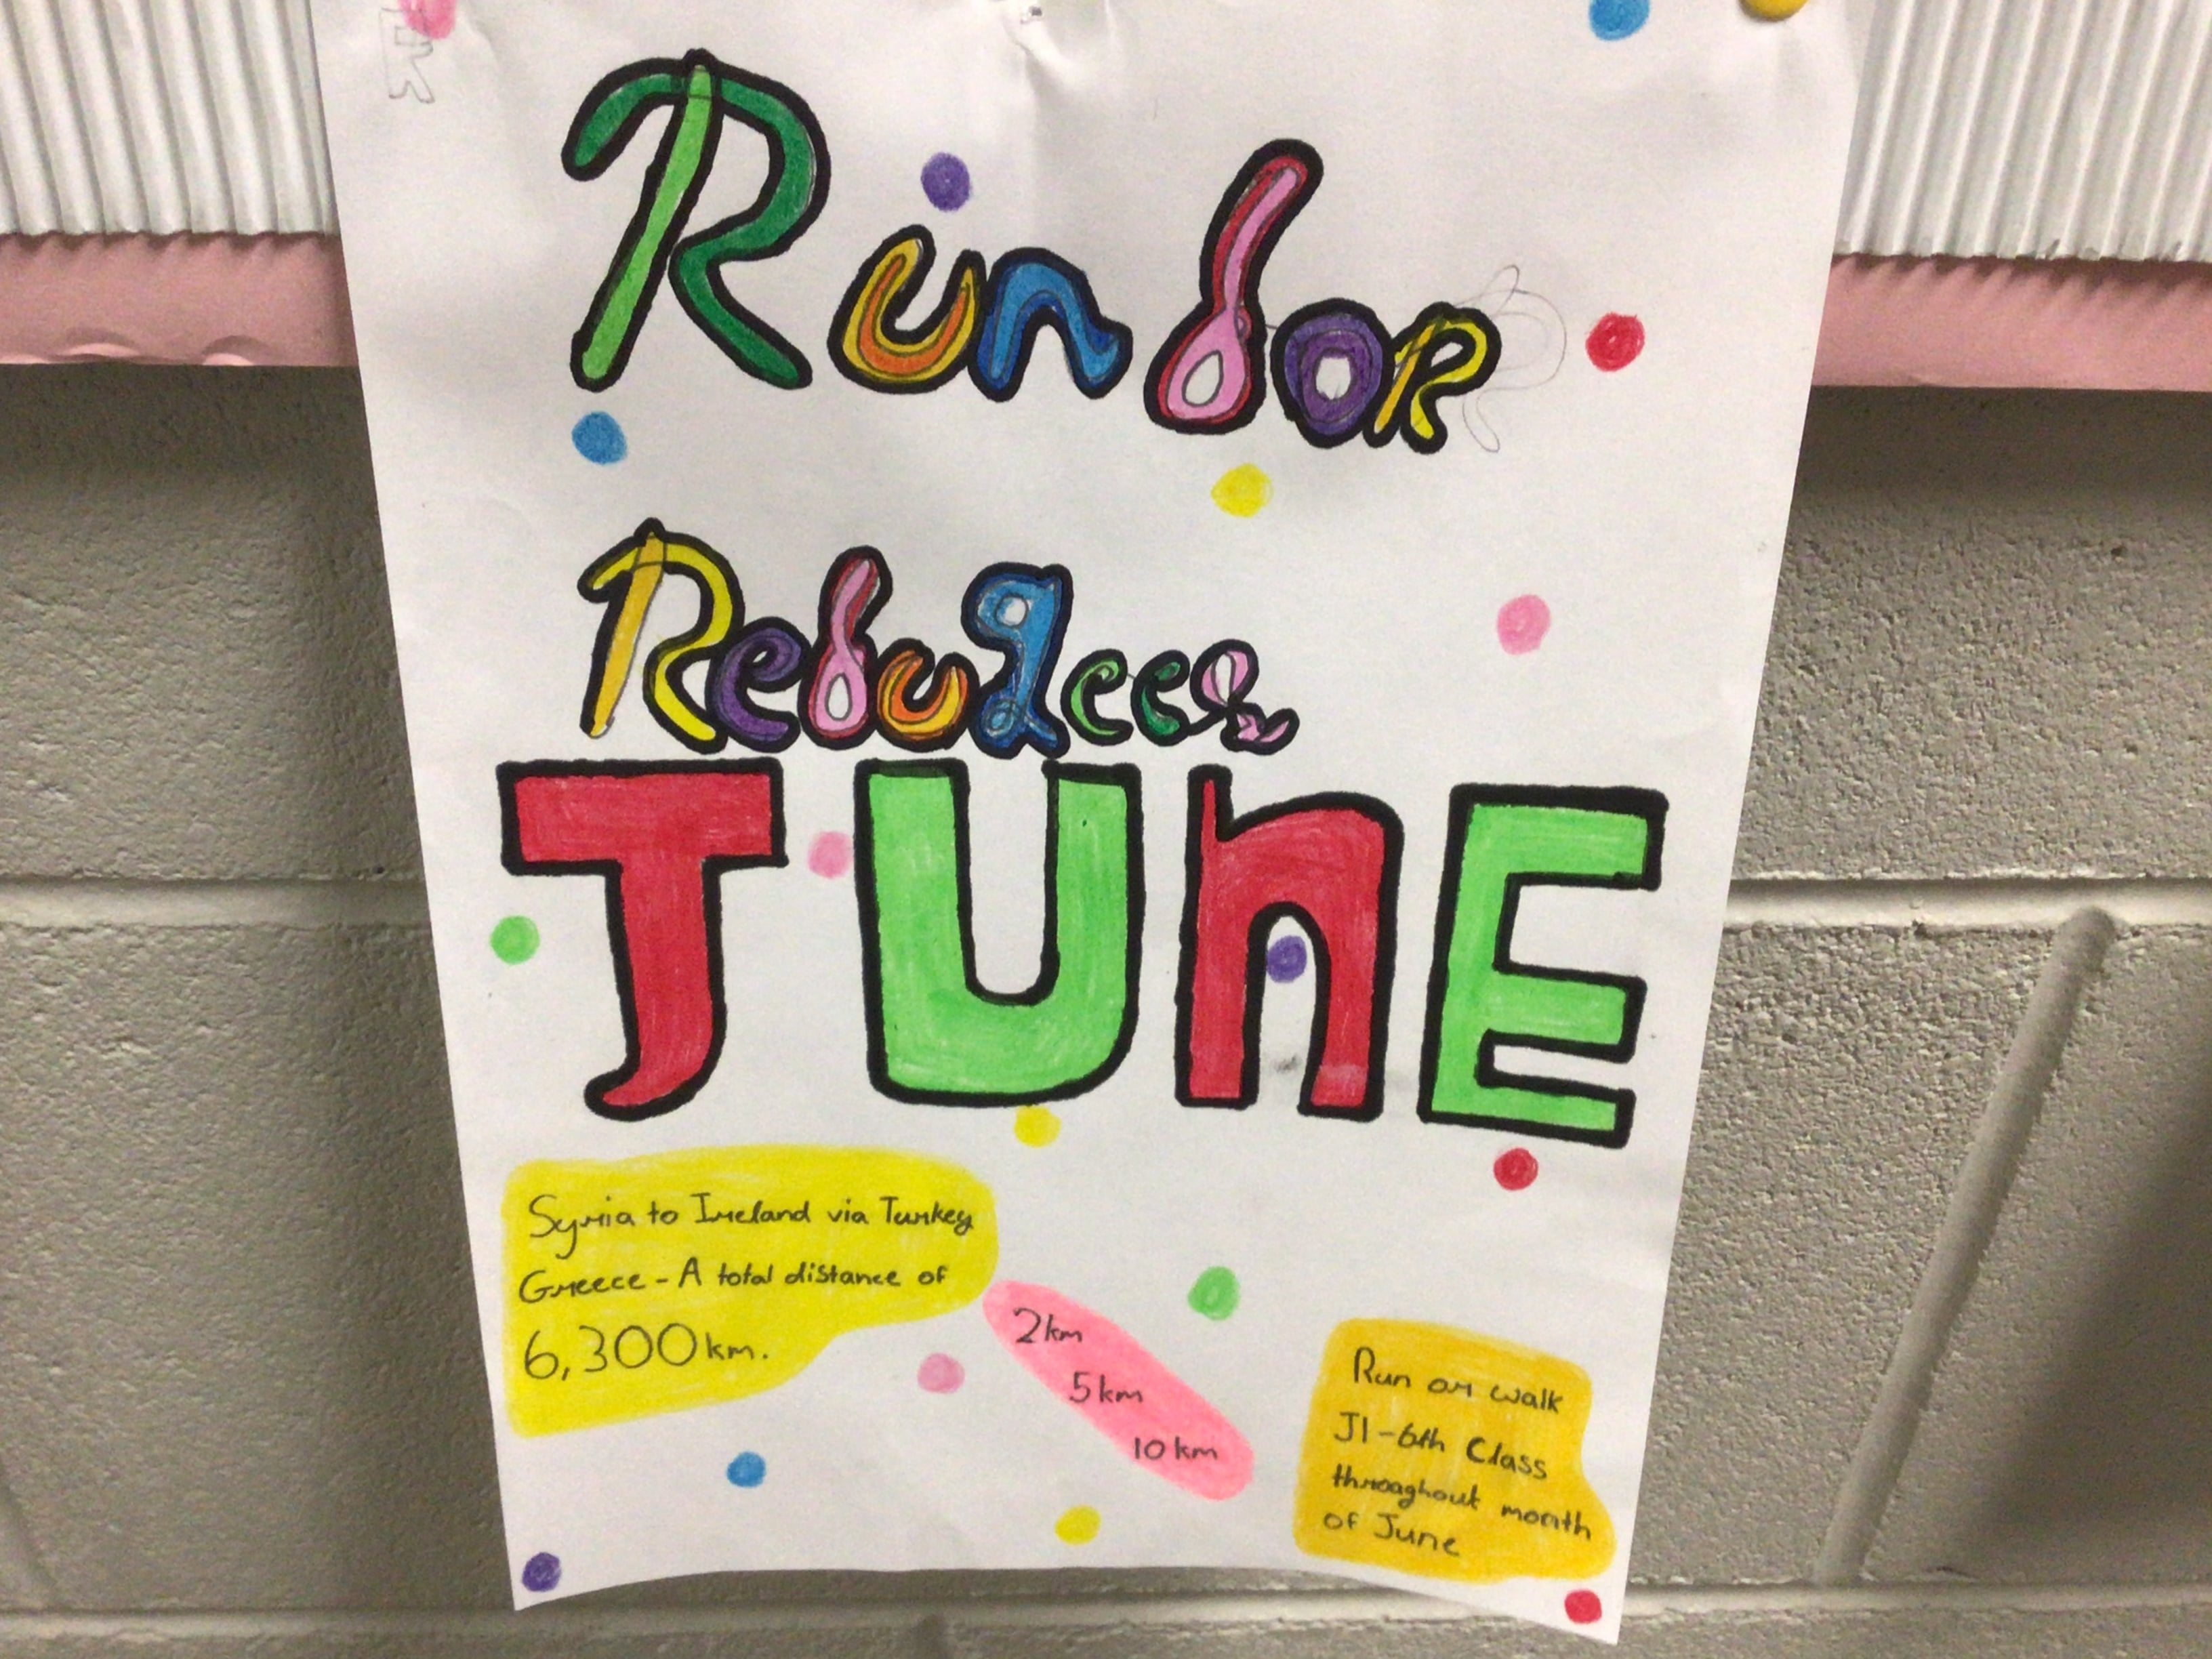 Run for
Refugees
JUnE
Syria to Ireland via Turkey
Greece - A total distance of
6,300km.
2km
5km
10km
Run or walk
J1-6th Class
throughout month
of June